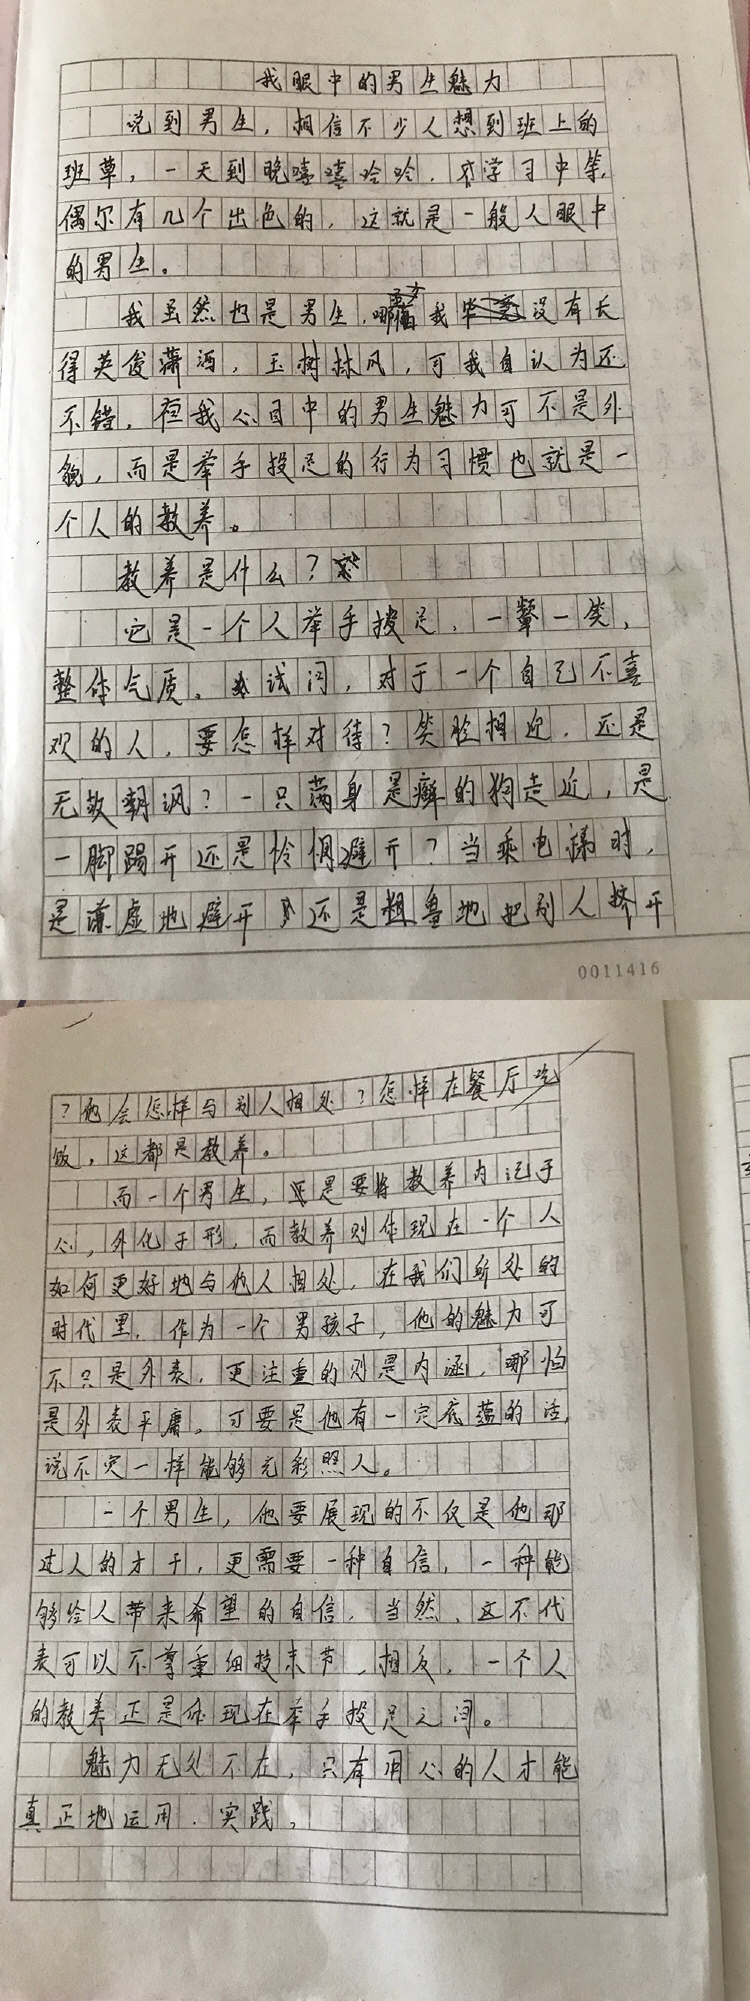 我眼中的男生魅力
说到男生，相信不少人想到班上的
班草，一天到晚嘻嘻哈哈，学习中等，
偶尔有几个出色的，这就是一般人眼中
的男生。
我虽然也是男生，哪我没有长
得英俊潇洒，玉树林风，可我自认为还
不错，在我心目中的男生魅力可不是外
貌，而是举手投足的行为习惯也就是一
个人的教养。
教养是什么？
它是一个人举手投足，一颦一笑，
整体气质。试问，对于一个自己不喜
欢的人，要怎样对待？笑脸相迎，还是
无故朝讽？一只满身是癣的狗走近，是
一脚踢开还是怜悯避开？当乘电梯时，
是谦虚地避开还是粗鲁地把别人挤开
0011416
？他会怎样与别人相处？怎样在餐厅吃
饭，这都是教养。
而一个男生，是要将教养内记于
心，外化于形，而教养则体现在一个人
如何更好地与他人相处，在我们所处的
时代里，作为一个男孩子，他的魅力可
不只是外表，更注重的则是内涵，哪怕
是外表平庸，可要是他有一定底蕴的话，
说不定一样能够光彩照人。
一个男生，他要展现的不仅是他那
过人的才干，更需要一种自信，一种能
够给人带来希望的自信，当然，这不代
表可以不尊重细技末节，相反，一个人
的教养正是体现在举手投足之间。
魅力无处不在，只有用心的人才能
真正地运用、实践。